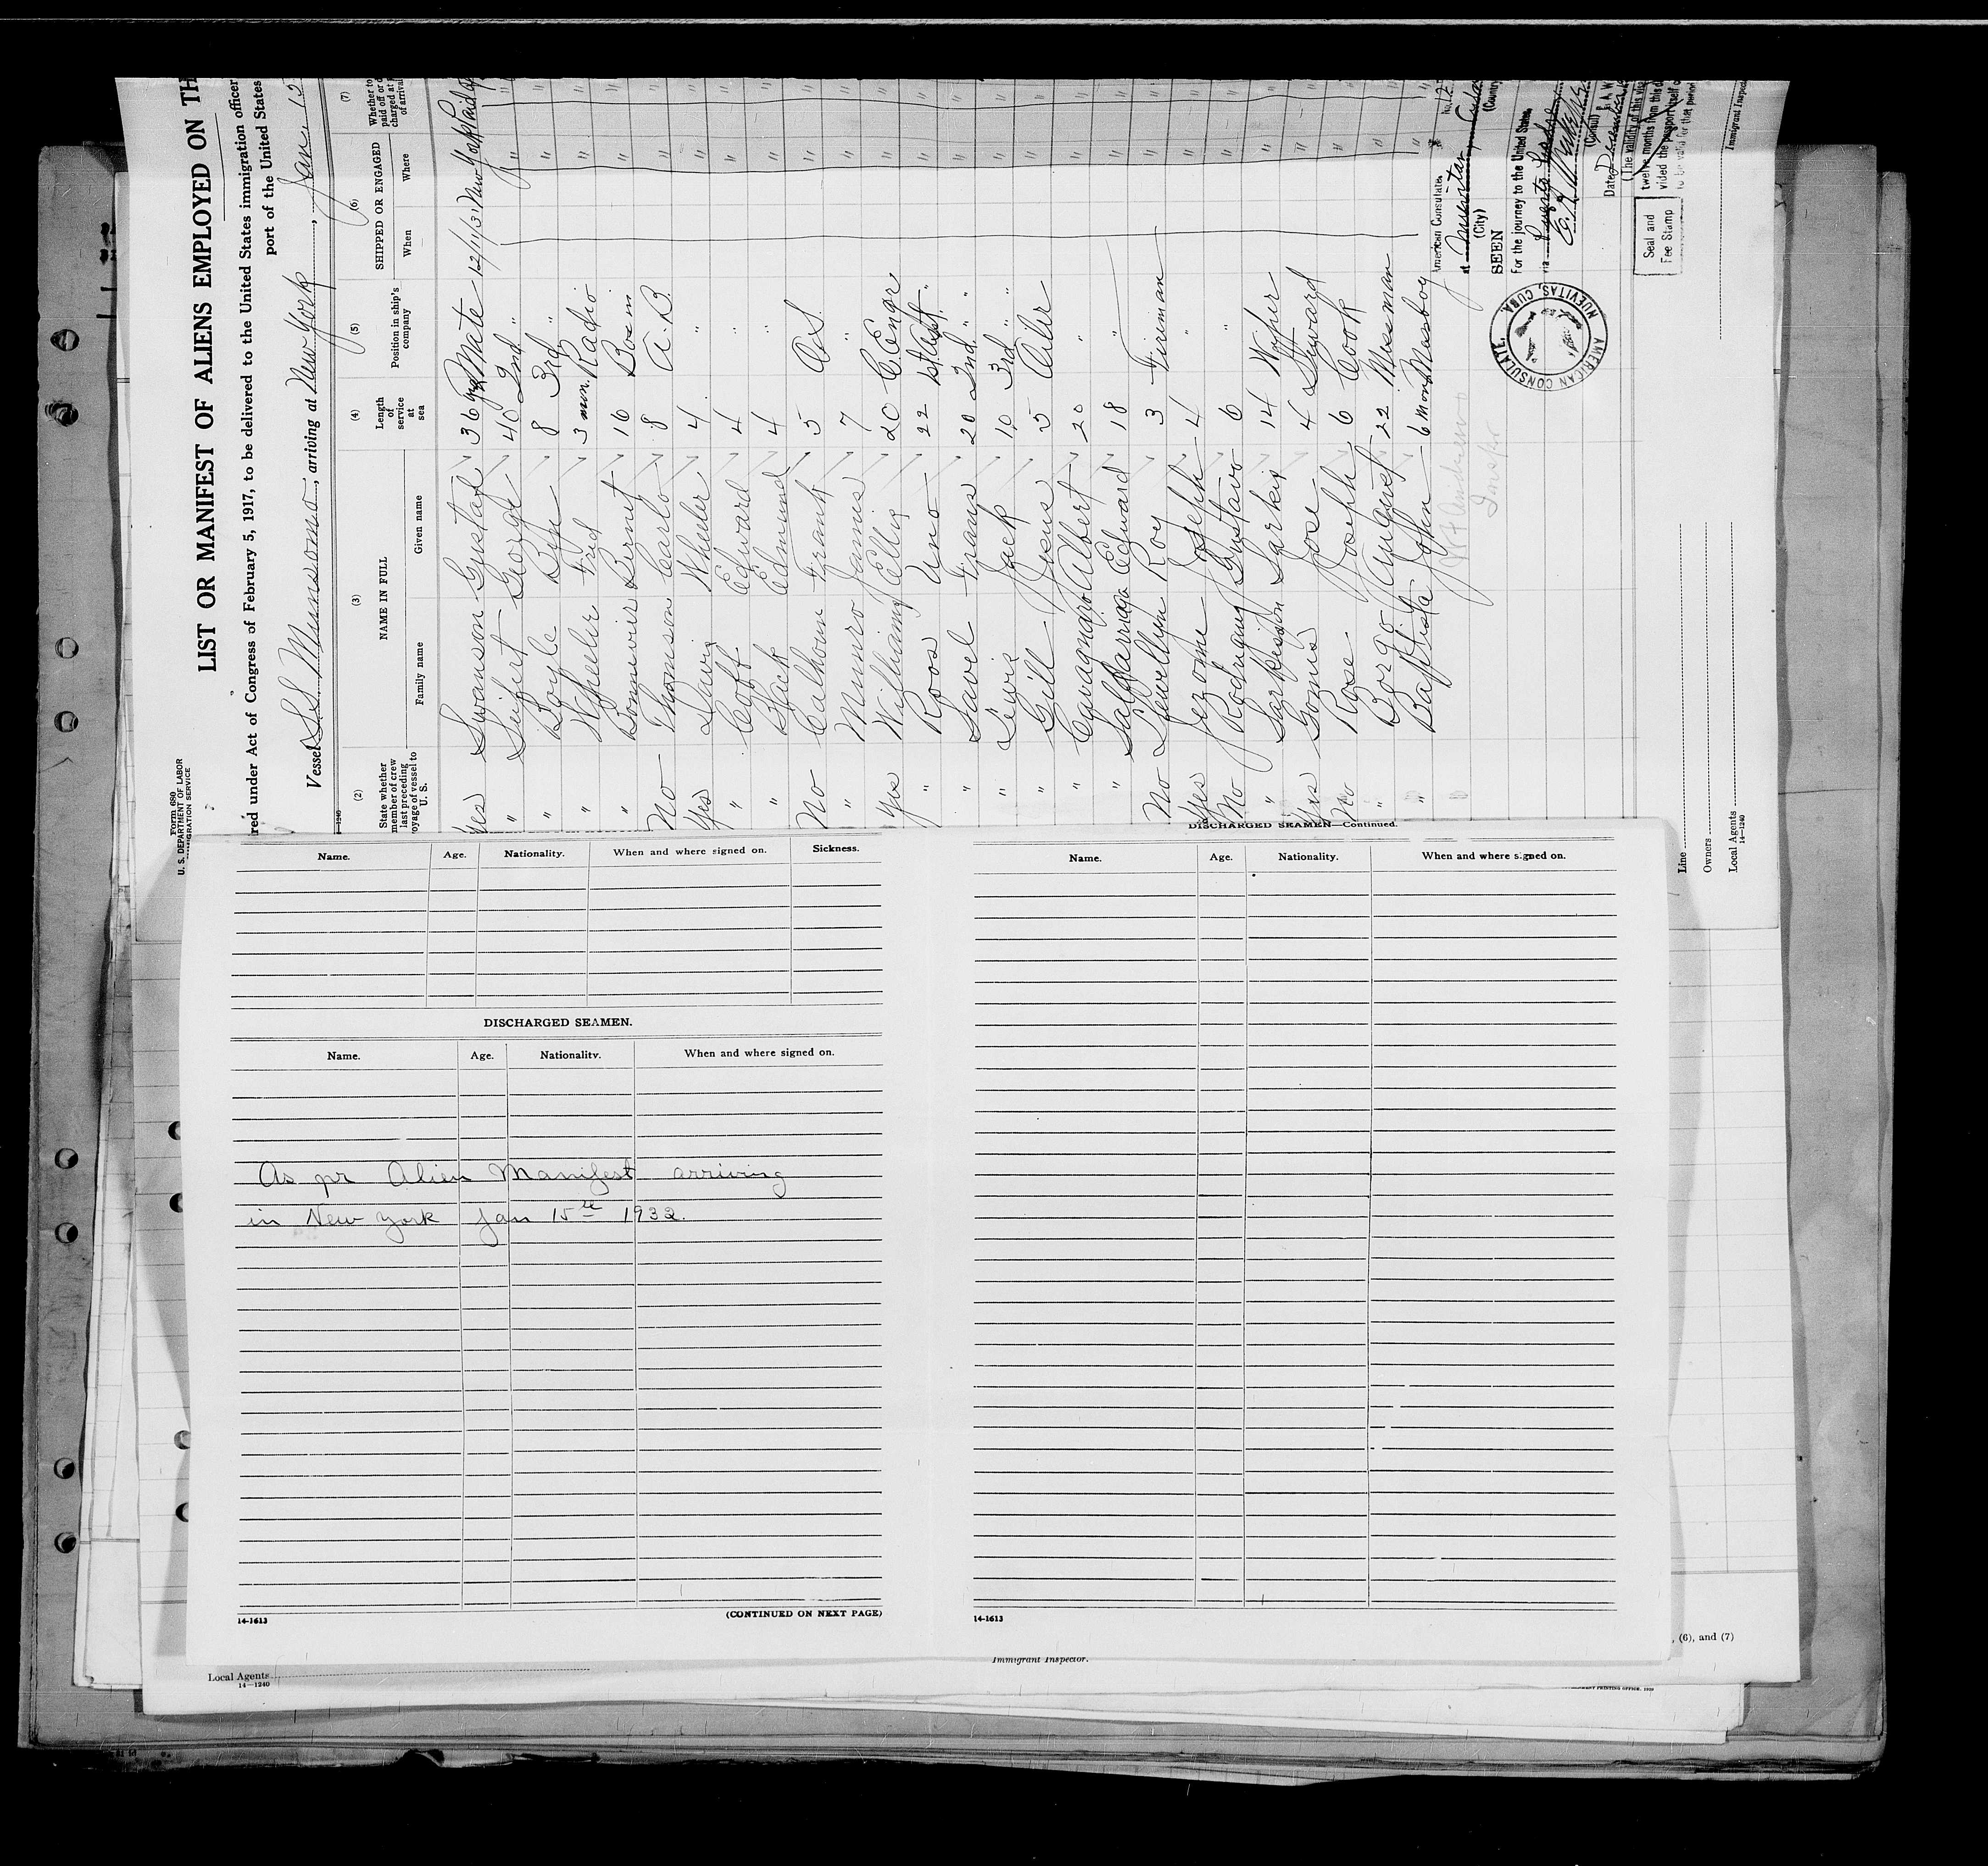 Form 680
U. S. DEPARTMENT OF LABOR
IMMIGRATION SERVICE
LIST OR MANIFEST OF ALIENS EMPLOYED ON TH
red under Act of Congress of February 5, 1917, to be delivered to the United States immigration officer
port of the United States
Vessel SS Munsomo, arriving at New York, Jan 15
(2) (3) (4) (5) (6) (7)
State whether member of crew last preceding voyage of vessel to U. S.
NAME IN FULL
Family name Given name
Length of service at sea
Position in ship's company
SHIPPED OR ENGAGED
When Where
Yes Swanson Gustaf 36 yrs Mate 12/1/31 New York
" Seifert George 40 2nd "
" Boyle Ben 8 3rd "
" Wheeler Fred 3 mn. Radio
" Bonnevie Bernet 16 Bosn
No Thomson Carlo 8 A.B.
Yes Davis Wheeler 4 "
" Goff Edward 4 "
" Black Edmund 4 "
No Calhoun Frank 5 O.S.
" Munro Jamis 7 "
Yes Williams Ellis 20 C. Engr
" Roos Uno 22 1st Asst.
" Savel Frans 20 2nd "
" Lewis Jack 10 3rd "
" Gill Jesus 5 Oiler
" Cavagnaro Albert 20 "
" Salaverriaga Edward 18 "
No Llewellyn Roy 3 Fireman
Yes Jerome Joseph 4 "
No Rodriguez Gustavo 6 "
" Sarkisson Sarkis 14 Wiper
Yes Gomis Jose 4 Steward
No Rose Joseph 6 Cook
" Borgo August 22 Messman
" Baptista John 6 Mon Messboy
Inspr
American Consulate
at Nuevitas, Cuba
(City) (Country)
SEEN
For the journey to the United States
via
Date December
(The validity of this vis
twelve months from this d
vided the passport itself c
to be valid for that period
Seal and
Fee Stamp
AMERICAN CONSULATE, NUEVITAS, CUBA.
Immigrant Inspec
Line
Owners
Local Agents
14—1240
Name. Age. Nationality. When and where signed on. Sickness.
DISCHARGED SEAMEN.
Name. Age. Nationality. When and where signed on.
As pr Alien Manifest arriving
in New York Jan 15th 1932.
14-1613 (CONTINUED ON NEXT PAGE)
DISCHARGED SEAMEN—Continued.
Name. Age. Nationality. When and where signed on.
14-1613
, (6), and (7)
Local Agents
14—1240
Immigrant Inspector.